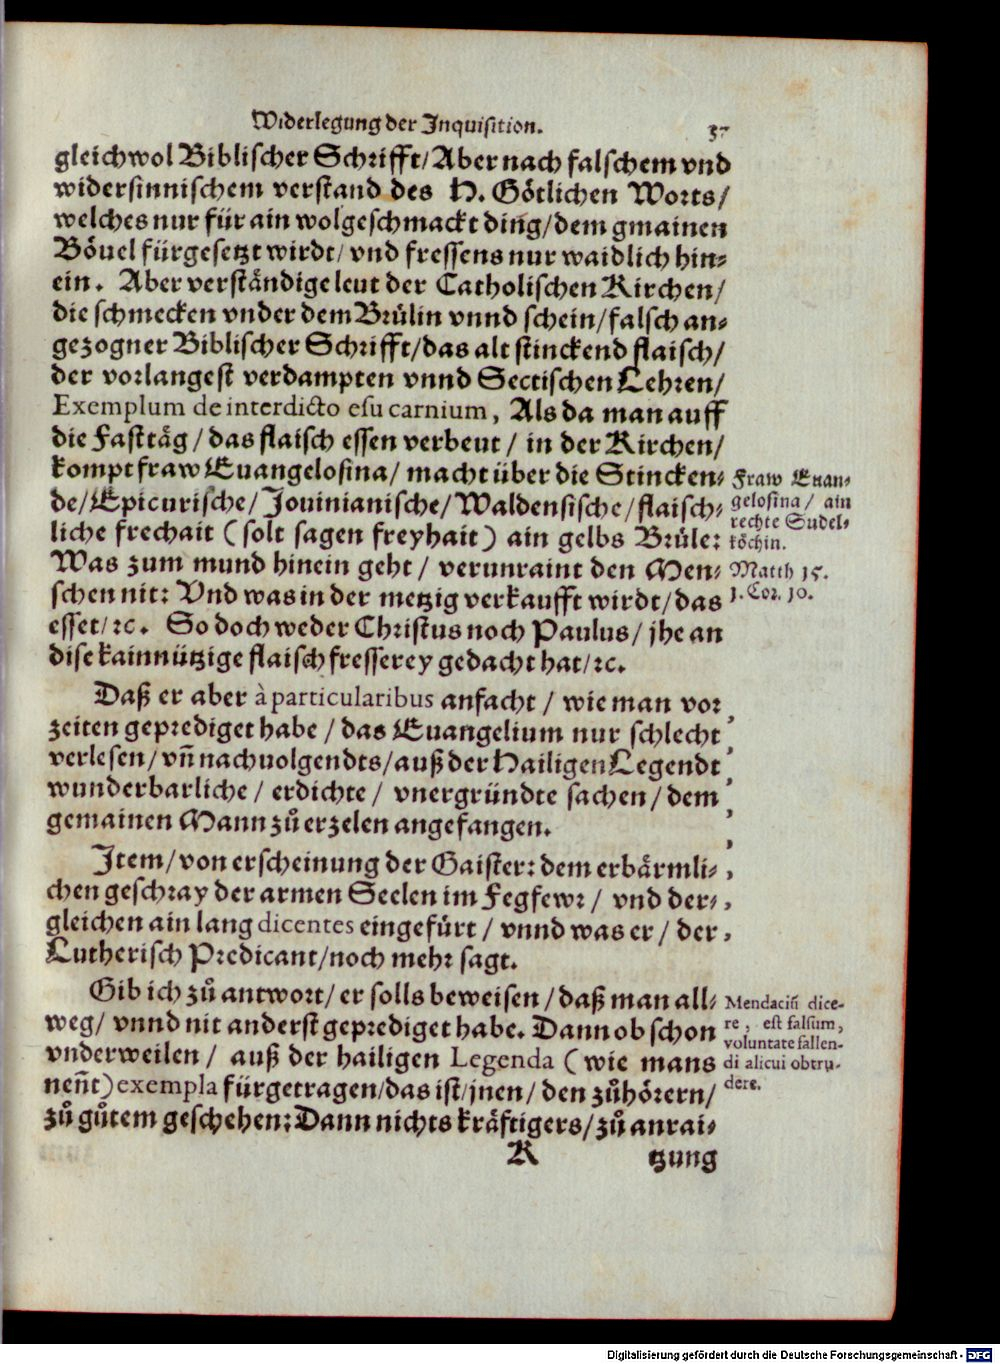 Widerlegung der Inquisition. 37
gleichwol Biblischer Schrifft/Aber nach falschem vnd
widersinnischem verstand des H. Götlichen Worts/
welches nur für ain wolgeschmackt ding/dem gmainen
Bövel fürgesetzt wirdt/ vnd fressens nur waidlich hin⸗
ein. Aber verständige leut der Catholischen Kirchen/
die schmecken vnder dem Brůlin vnnd schein/falsch an⸗
gezogner Biblischer Schrifft/das alt stinckend flaisch/
der vorlangest verdampten vnnd Sectischen Lehren/
Exemplum de interdicto esu carnium, Als da man auff
die Fasttäg/das flaisch essen verbeut/ in der Kirchen/
kompt fraw Euangelosina/ macht über die Stincken⸗
de/Epicurische/Jouinianische/Waldensische/flaisch⸗
liche frechait (solt sagen freyhait) ain gelbs Brůle:
Was zum mund hinein geht/ verunraint den Men⸗
schen nit: Vnd was in der metzig verkaufft wirdt/das
esset/ꝛc. So doch weder Christus noch Paulus/ jhe an
dise kainnützige flaisch fresserey gedacht hat/ꝛc.
Fraw Euan⸗
gelosina/ ain
rechte Sudel⸗
köchin.
Matth 15.
1. Cor. 10.
Daß er aber à particularibus anfacht/ wie man vor
zeiten geprediget habe/ das Euangelium nur schlecht
verlesen/ vn̄ nachuolgendts/auß der Hailigen Legendt
wunderbarliche/ erdichte/ vnergründte sachen/ dem
gemainen Mann zů erzelen angefangen.
Item/ von erscheinung der Gaister: dem erbärmli⸗
chen geschray der armen Seelen im Fegfewr/ vnd der⸗
gleichen ain lang dicentes eingefůrt/ vnnd was er/ der
Lutherisch Predicant/noch mehr sagt.
Gib ich zů antwort/ er solls beweisen/ daß man all⸗
weg/ vnnd nit anderst geprediget habe. Dann ob schon
vnderweilen/ auß der hailigen Legenda (wie mans
nen̄t) exempla fürgetragen/das ist/jnen/ den zůhörern/
zů gůtem geschehen: Dann nichts kräftigers/zů anrai⸗
Mendaciū dice-
re, est falsum,
voluntate fallen-
di alicui obtru-
dere.
K tzung
Digitalisierung gefördert durch die Deutsche Forschungsgemeinschaft - DFG